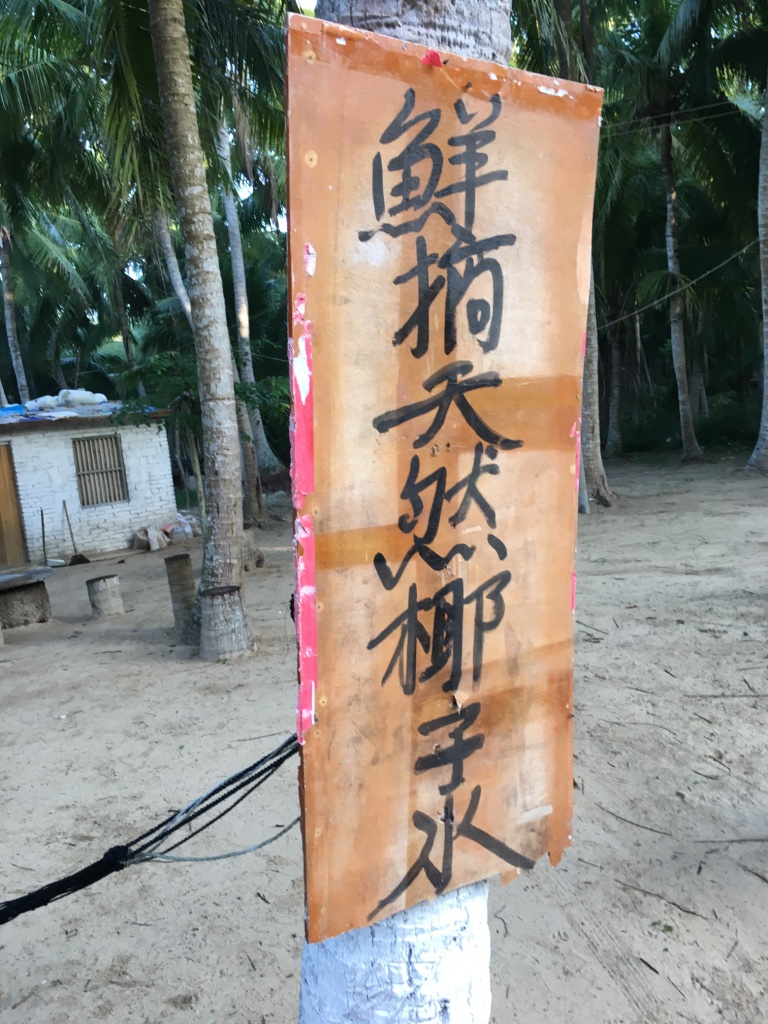 鮮摘天然椰子水